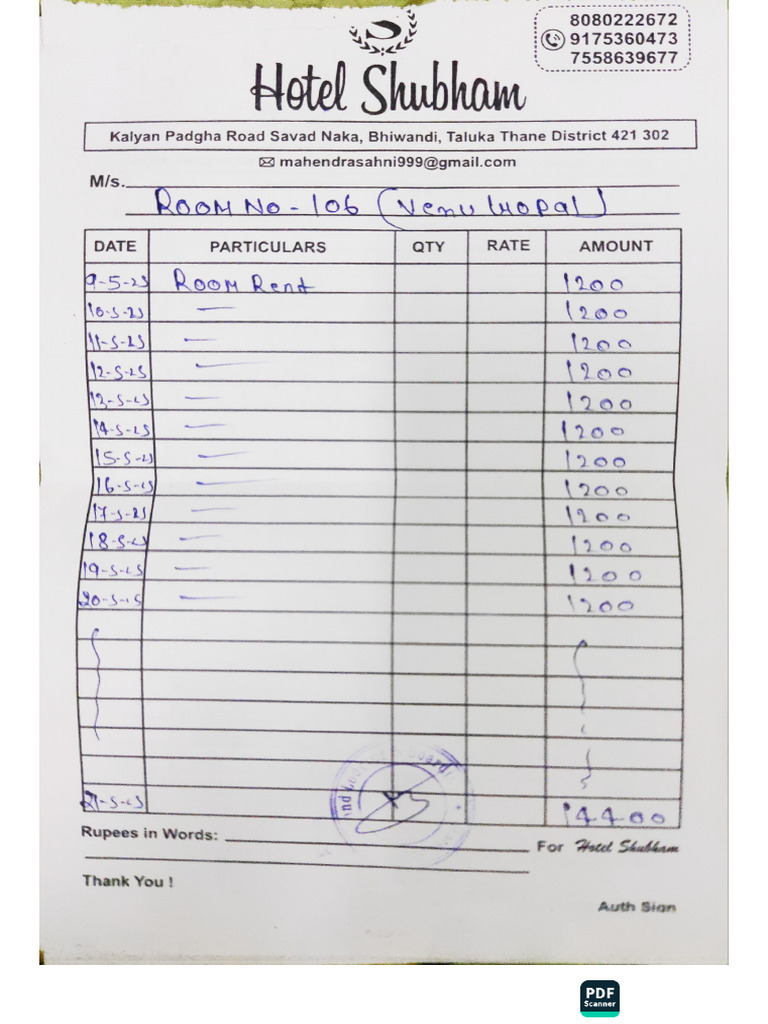 8080222672
9175360473
7558639677
Hotel Shubham
Kalyan Padgha Road Savad Naka, Bhiwandi, Taluka Thane District 421 302
mahendrasahni999@gmail.com
M/s.
ROOM NO - 106 (Venu Gopal)
DATE PARTICULARS QTY RATE AMOUNT
9-5-25 ROOM Rent 1200
10-5-25 — 1200
11-5-25 — 1200
12-5-25 — 1200
13-5-25 — 1200
14-5-25 — 1200
15-5-25 — 1200
16-5-25 — 1200
17-5-25 — 1200
18-5-25 — 1200
19-5-25 — 1200
20-5-25 — 1200
21-5-25 14400
Rupees in Words:
For Hotel Shubham
Thank You !
Auth Sign
PDF
Scanner